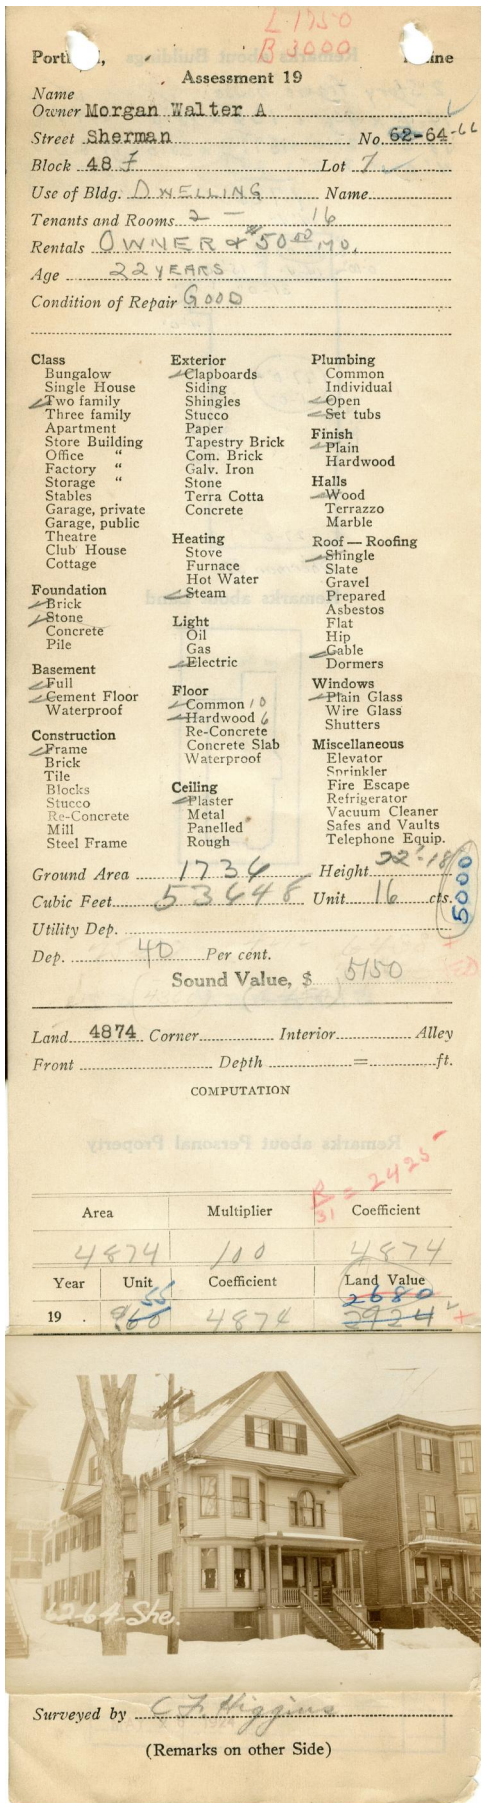 L-1750
B 3000
Portl , ine
Assessment 19
Name
Owner Morgan Walter A
Street Sherman No. 62-64-66
Block 48 F Lot 7
Use of Bldg. DWELLING Name
Tenants and Rooms 2 — 16
Rentals OWNER & $50.00 MO.
Age 22 YEARS
Condition of Repair GOOD
Class
Bungalow
Single House
Two family
Three family
Apartment
Store Building
Office "
Factory "
Storage "
Stables
Garage, private
Garage, public
Theatre
Club House
Cottage
Foundation
Brick
Stone
Concrete
Pile
Basement
Full
Cement Floor
Waterproof
Construction
Frame
Brick
Tile
Blocks
Stucco
Re-Concrete
Mill
Steel Frame
Exterior
Clapboards
Siding
Shingles
Stucco
Paper
Tapestry Brick
Com. Brick
Galv. Iron
Stone
Terra Cotta
Concrete
Heating
Stove
Furnace
Hot Water
Steam
Light
Oil
Gas
Electric
Floor
Common 10
Hardwood 6
Re-Concrete
Concrete Slab
Waterproof
Ceiling
Plaster
Metal
Panelled
Rough
Plumbing
Common
Individual
Open
Set tubs
Finish
Plain
Hardwood
Halls
Wood
Terrazzo
Marble
Roof — Roofing
Shingle
Slate
Gravel
Prepared
Asbestos
Flat
Hip
Gable
Dormers
Windows
Plain Glass
Wire Glass
Shutters
Miscellaneous
Elevator
Sprinkler
Fire Escape
Refrigerator
Vacuum Cleaner
Safes and Vaults
Telephone Equip.
Ground Area 1736 Height 22'-18
Cubic Feet 53648 Unit 16 cts.
5000
Utility Dep.
Dep. 40 Per cent.
Sound Value, $ 5150
Land 4874 Corner Interior Alley
Front Depth = ft.
COMPUTATION
B/31 = 2425
Area Multiplier Coefficient
4874 100 4874
Year Unit Coefficient Land Value
55 2680
19 . 60 4874 2924
62-64-She.
Surveyed by C F Higgins
(Remarks on other Side)